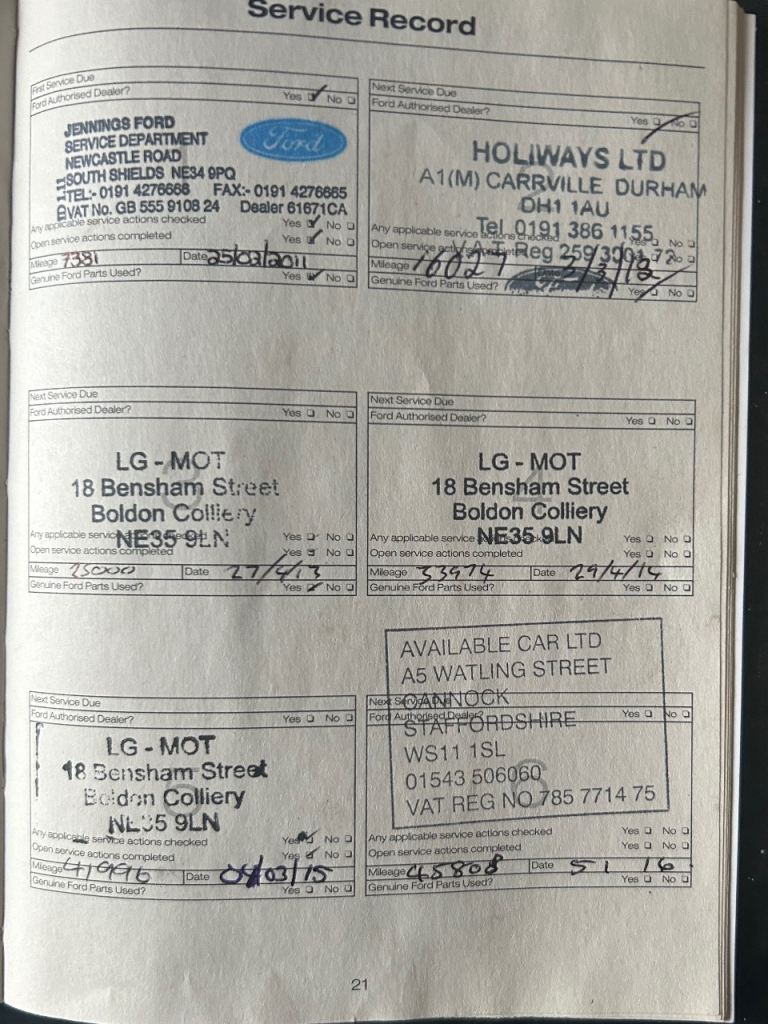 Service Record
First Service Due
Ford Authorised Dealer? Yes ✓ No
JENNINGS FORD
SERVICE DEPARTMENT
NEWCASTLE ROAD
SOUTH SHIELDS NE34 9PQ
TEL:- 0191 4276668 FAX:- 0191 4276665
VAT No. GB 555 9108 24 Dealer 61671CA
Ford
Any applicable service actions checked Yes ✓ No
Open service actions completed Yes ✓ No
Mileage 7381 Date 25/03/2011
Genuine Ford Parts Used? Yes ✓ No
Next Service Due
Ford Authorised Dealer? Yes No
HOLIWAYS LTD
A1(M) CARRVILLE DURHAM
DH1 1AU
Tel 0191 386 1155
V.A.T Reg 259
Any applicable service actions checked Yes No
Open service actions completed Yes No
Mileage 16027 Date
Genuine Ford Parts Used? Yes No
Next Service Due
Ford Authorised Dealer? Yes No
LG - MOT
18 Bensham Street
Boldon Colliery
NE35 9LN
Any applicable service Yes No
Open service actions completed Yes No
Mileage 25000 Date 27/4/13
Genuine Ford Parts Used? Yes No
Next Service Due
Ford Authorised Dealer? Yes No
LG - MOT
18 Bensham Street
Boldon Colliery
NE35 9LN
Any applicable service Yes No
Open service actions completed Yes No
Mileage 33974 Date 29/4/14
Genuine Ford Parts Used? Yes No
Next Service Due
Ford Authorised Dealer? Yes No
LG - MOT
18 Bensham Street
Boldon Colliery
NE35 9LN
Any applicable service actions checked Yes No
Open service actions completed Yes No
Mileage 41996 Date 04/03/15
Genuine Ford Parts Used? Yes No
AVAILABLE CAR LTD
A5 WATLING STREET
CANNOCK
STAFFORDSHIRE
WS11 1SL
01543 506060
VAT REG NO 785 7714 75
Next Service Due
Ford Authorised Dealer? Yes No
Any applicable service actions checked Yes No
Open service actions completed Yes No
Mileage 45808 Date 5 1 16
Genuine Ford Parts Used? Yes No
21